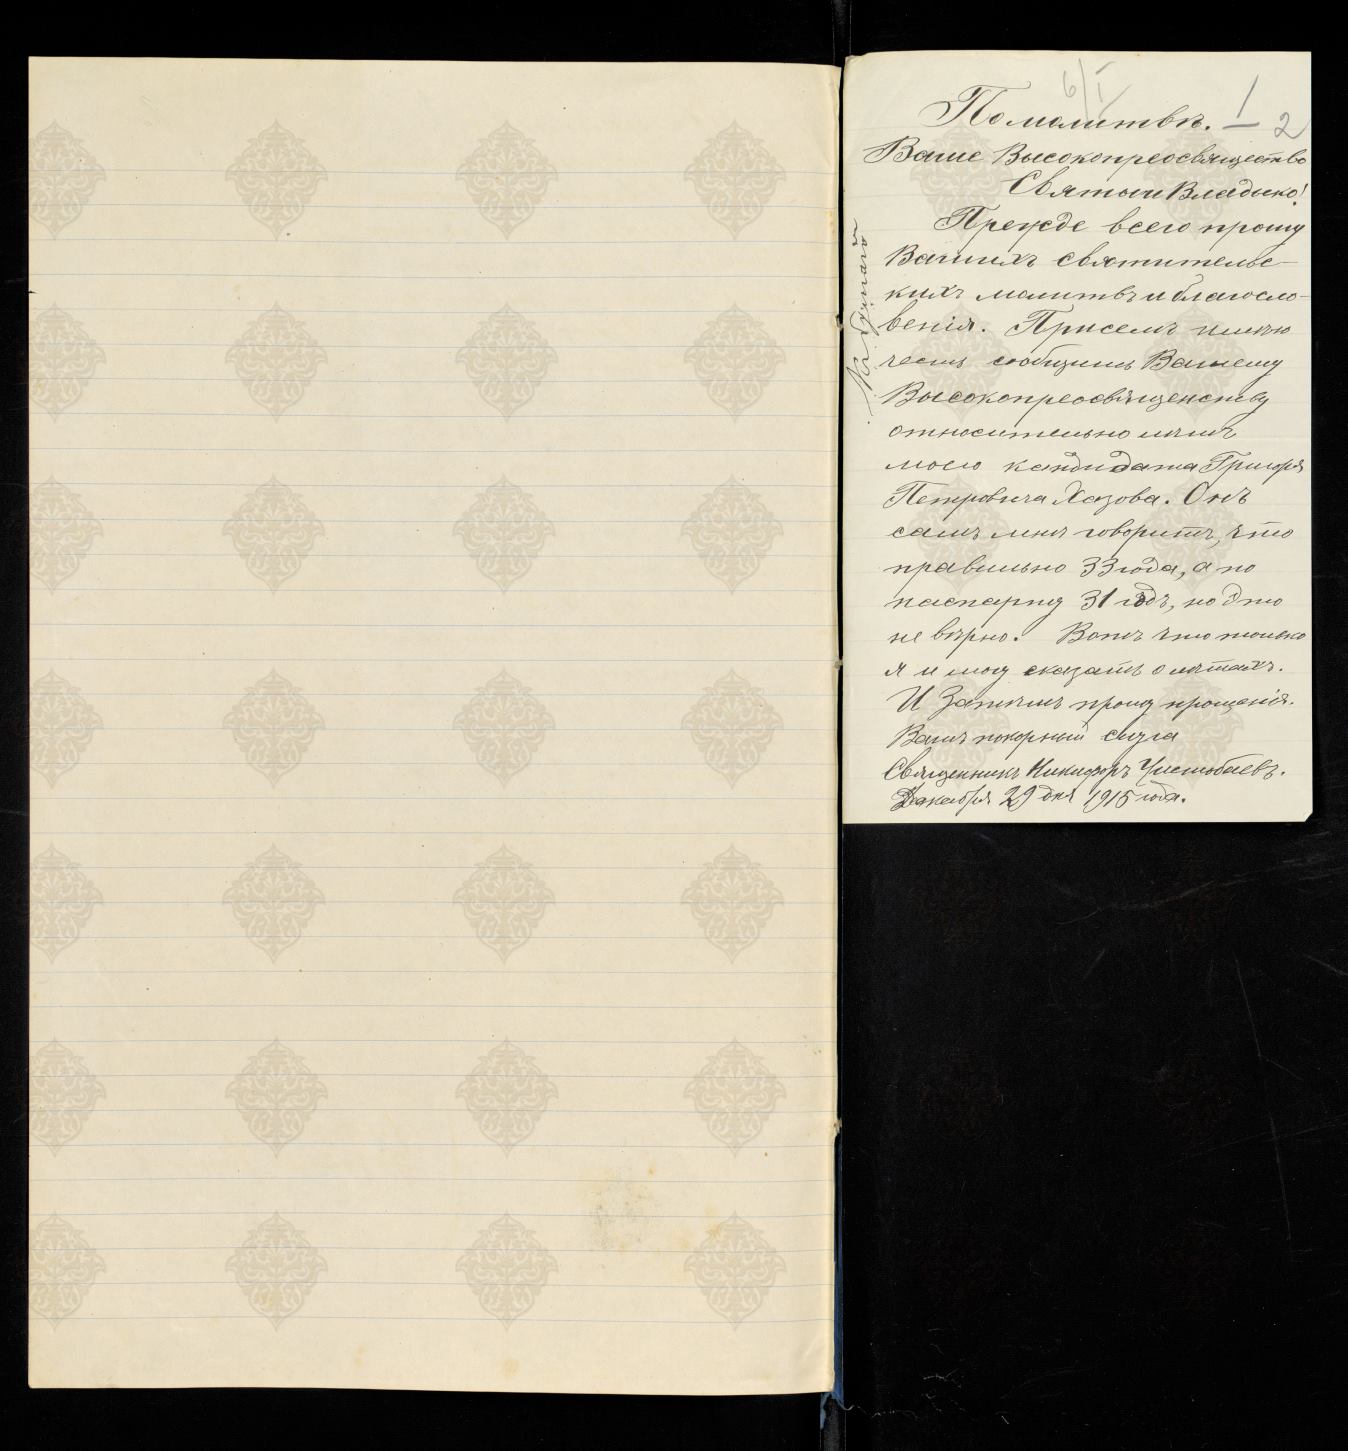 6/I
По молитвѣ. 1
2
Ваше Высокопреосвящество
Святыи Владыко!
Прежде всего прошу
Вашихъ святительс-
кихъ молитвъ и благосло-
венія. Присемъ имѣю
честь сообщить Вашему
Высокопреосвященству
относительно лѣтъ
моего кандидата Григорія
Петровича Хазова. Онъ
самъ мнѣ говоритъ, что
правильно 33 года, а по
паспарту 31 годъ, но это
не вѣрно. Вотъ что только
я и могу сказать о лѣтахъ.
И Затѣмъ прошу прощенія.
Вашъ покорный слуга
Священникъ Никифоръ Чистобаевъ.
Декабря 29 дня 1915 года.